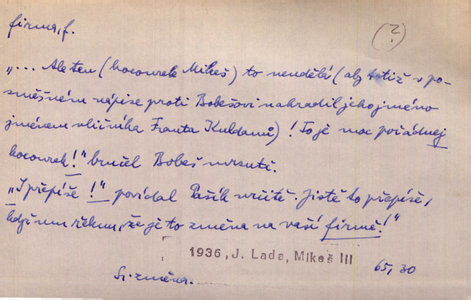 firma, f. (?)
„... Ale ten (kocourek Mikeš) to neudělá (aby totiž v po-
směšném nápise proti Bobešovi nahradil jeho jméno
jménem uličníka Franta Kuldanů)! To je moc pořádnej
kocourek!" bručel Bobeš mrzutě.
„I přepíše!" povídal Pašík určitě. Jistě to přepíše,
když mu řeknu, že je to změna na vaší firmě!"
1936, J. Lada, Mikeš III
65, 30
změna.